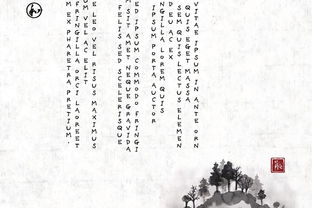 VITAE IPSUM IN ANTE ORN
QUIS EGET MASSA
SEM QUIS LECTUS ELEMEN
EU AC EX.
NGILLA LOREM QUIS
IPSUM PORTA AUCTOR
ED IPSUM COMMODO FRINGI
M SIT AMET NEQUE GRAVIDA
FELIS SED SCELERISQUE
E LEO VEL RISUS MAXIMUS
UM VEL AC ELIT
FRINGILLA ORCI LAOREET
M EX PHARETRA PRETIUM.